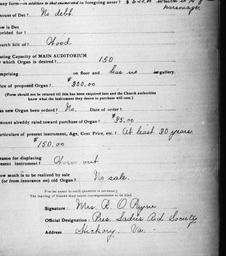 any form—in addition to that enumerated for foregoing answer? $
parsonage
ount of Debt No debt.
ow is Debt
rovided for?
hurch built of? Wood
eating Capacity of MAIN AUDITORIUM
or which Organ is desired? 150
omprising on floor and has no gallery.
ice of proposed Organ? $300.00
(Form should not be returned till this has been inquired into and the Church authorities
know what the instrument they desire to purchase will cost.)
as new Organ been ordered? No. Date of order.
mount already raised toward purchase of Organ? $35.00
articulars of present instrument, Age, Cost Price, etc.? At least 30 years
$150.00
eason for displacing
resent instrument? Worn out
ow much is to be realized by sale
r (or from insurance on) old Organ? No sale.
Signature: Mrs. R. O. Payne
Official Designation: Pres. Ladies Aid Society
Address Hickory, Va.